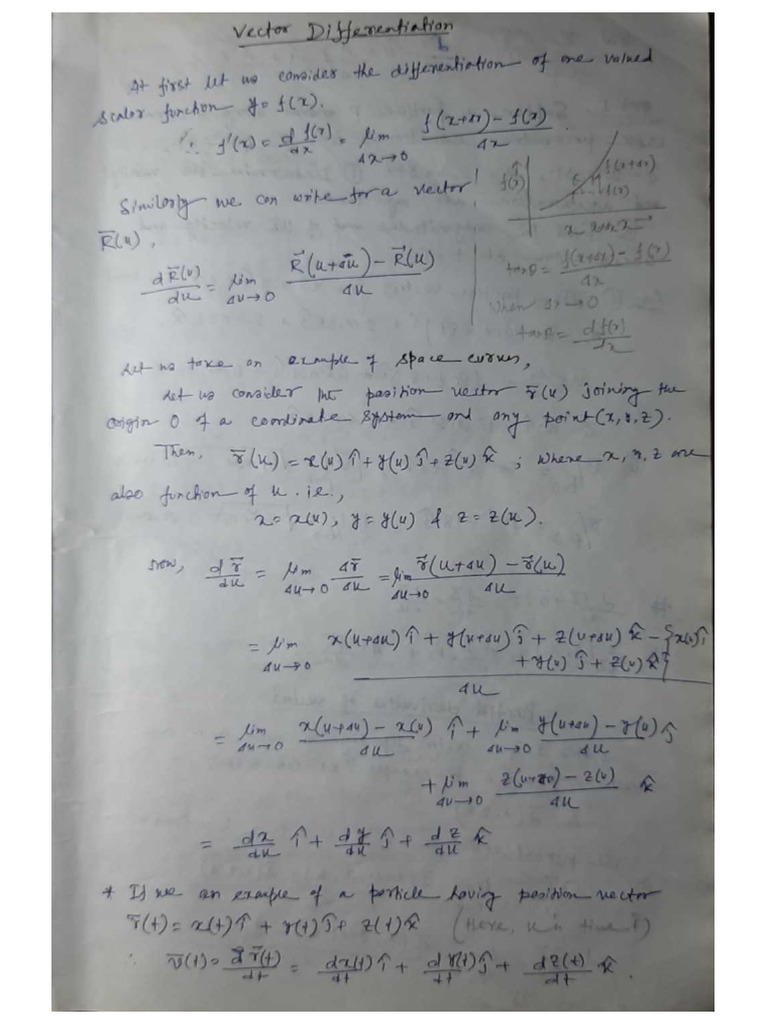 Vector Differentiation
At first let us consider the differentiation of one valued
scalar function y = f(x).
∴ f'(x) = d f(x)/dx = lim Δx→0 f(x+Δx) − f(x)/Δx
f(x) f(x+Δx)
f(x)
x x+Δx x→
Similarly we can write for a vector
R⃗(u),
tanθ = f(x+Δx) − f(x)/Δx
dR⃗(u)/du = lim Δu→0 R⃗(u+Δu) − R⃗(u)/Δu
when Δx→0
tanθ = df(x)/dx
Let us take an example of space curves,
Let us consider the position vector r̄(u) joining the
origin O of a coordinate system and any point (x, y, z).
Then, r̄(u) = x(u) î + y(u) ĵ + z(u) k̂ ; where x, y, z are
also function of u. i.e.,
x = x(u), y = y(u) & z = z(u).
Now, dr̄/du = lim Δu→0 Δr̄/Δu = lim Δu→0 r̄(u+Δu) − r̄(u)/Δu
= lim Δu→0 x(u+Δu) î + y(u+Δu) ĵ + z(u+Δu) k̂ − {x(u) î
+ y(u) ĵ + z(u) k̂}/Δu
= lim Δu→0 x(u+Δu) − x(u)/Δu î + lim Δu→0 y(u+Δu) − y(u)/Δu ĵ
+ lim Δu→0 z(u+Δu) − z(u)/Δu k̂
= dx/du î + dy/du ĵ + dz/du k̂
* If we an example of a particle having position vector
r̄(t) = x(t) î + y(t) ĵ + z(t) k̂ (Here, u is time t)
∴ v̄(t) = dr̄(t)/dt = dx(t)/dt î + dy(t)/dt ĵ + dz(t)/dt k̂.